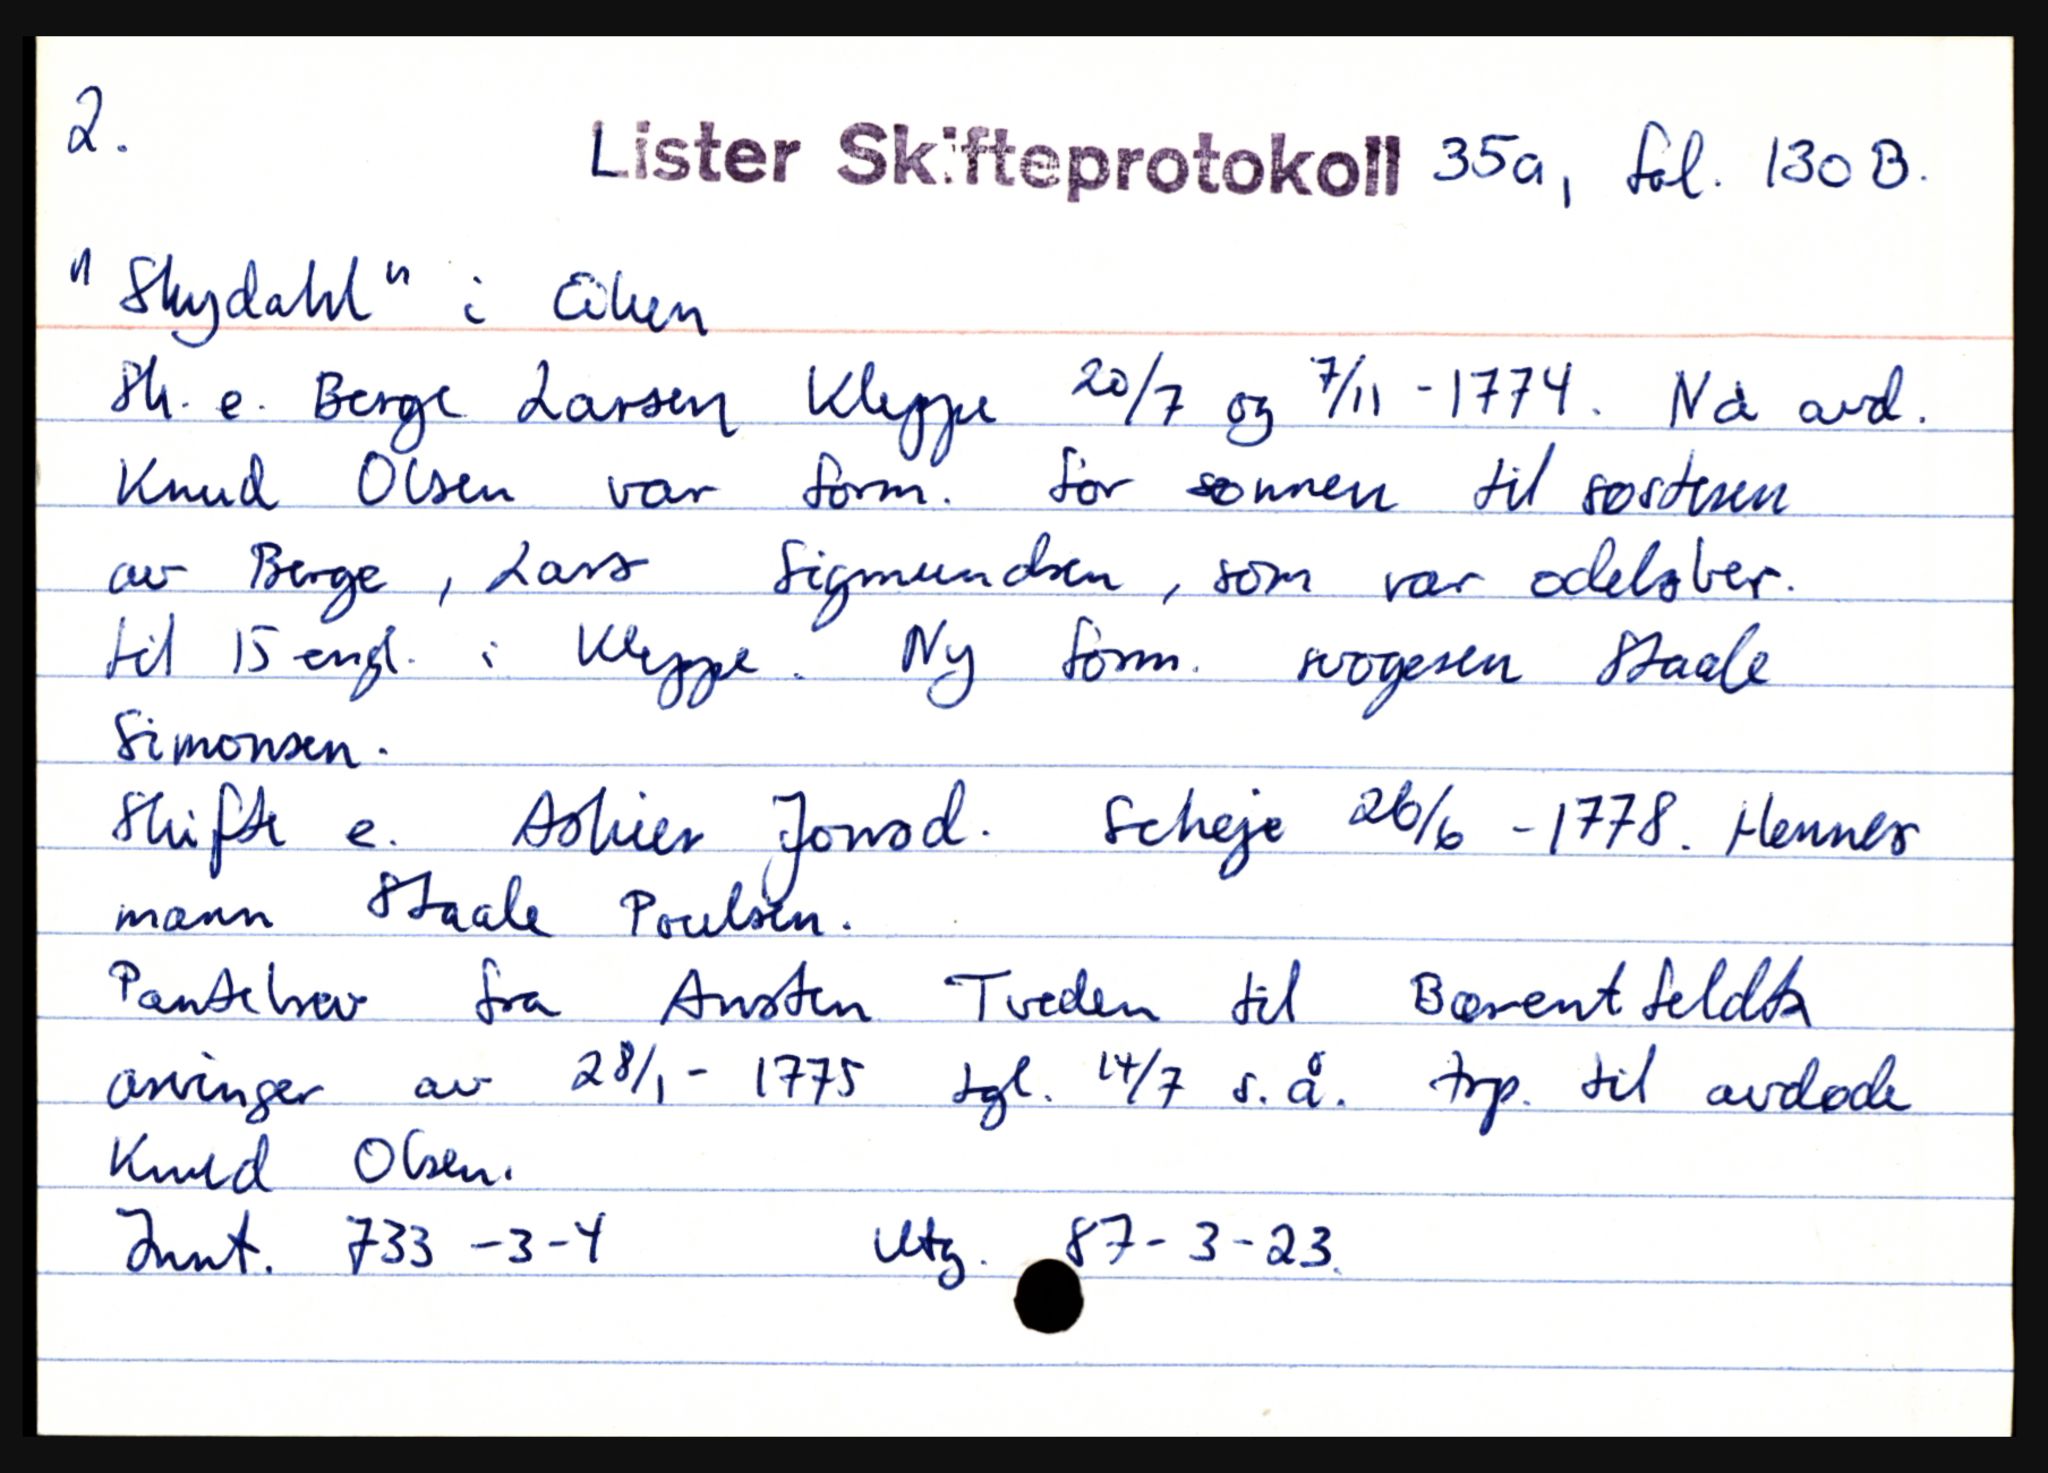 2.
Lister Skifteprotokoll 35a, fol. 130 B.
"Skydahl" i Eiken
Sk. e. Berge Larsen Kleppe 20/7 og 7/11 - 1774. Nå avd.
Knud Olsen var form. for sønnen til søsteren
av Berge, Lars Sigmundsen, som var odelsber.
til 15 engl. i Kleppe. Ny form. svogeren Staale
Simonsen.
Skifte e. Askier Jonsd. Scheje 26/6 - 1778. Hennes
mann Staale Poulsen.
Pantebrev fra Ansten Tveden til Bærentfeldts
arvinger av 28/1 - 1775 tgl. 14/7 s. å. trp. til avdøde
Knud Olsen.
Innt. 733 - 3 - 4 Utg. 87 - 3 - 23.